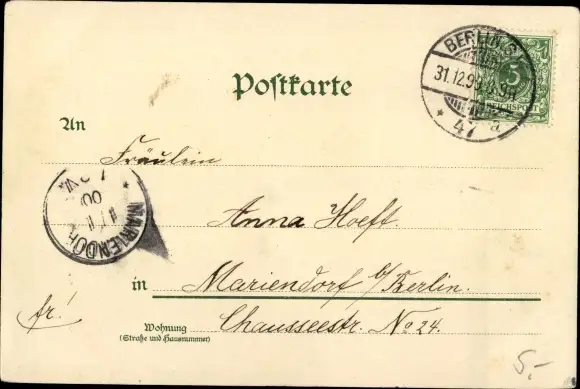 Postkarte
BERLIN S.
31.12.99
* 47 a
5
REICHSPOST
An
Fräulein
Anna Hoeft.
MARIENDORF
in Mariendorf b/Berlin.
fr!
Wohnung Chausseestr. No 24.
(Straße und Hausnummer)
5,-